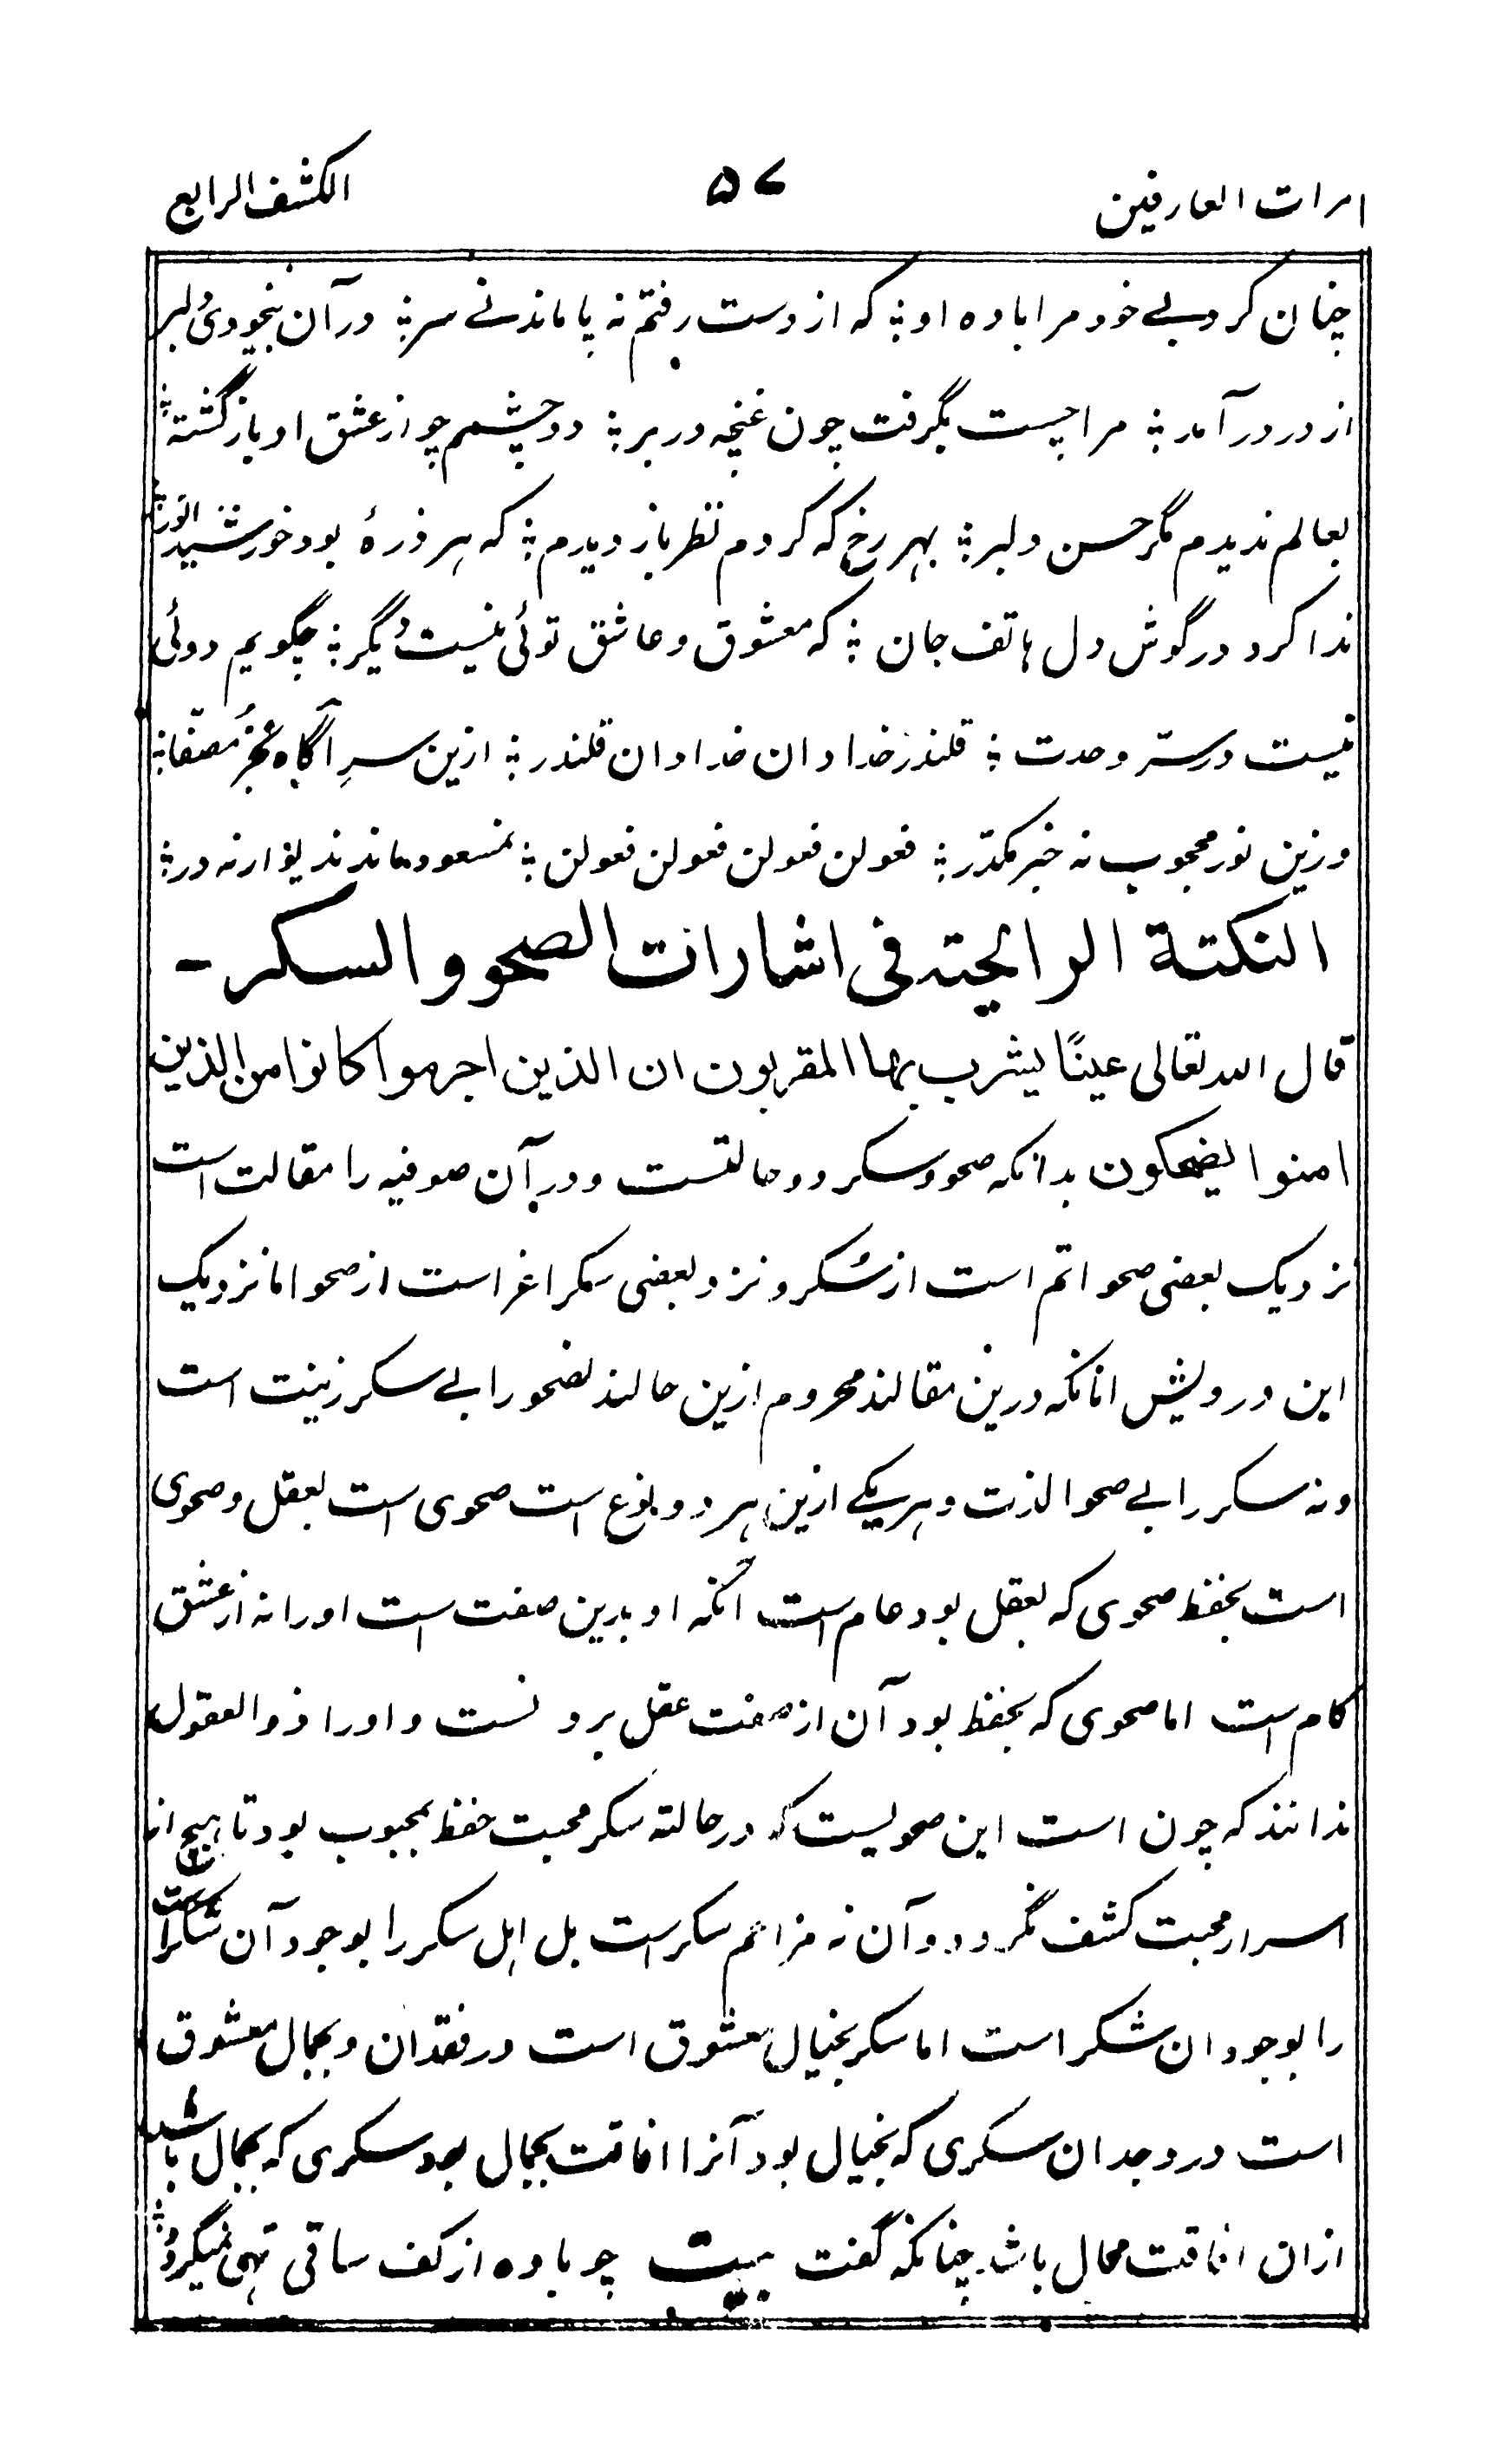 امرات العارفین ۵۷ الکشف الرابع
چنان کرد بے خود مرا باده او ؛ که از دست رفتم نه پا ماند نے سر ؛ در آن بیخودیٔ دلبر
از در درآمد ؛ مرا چست بگرفت چون غنچه در بر ؛ دو چشمم چو از عشق او باز گشته ؛
بعالم ندیدم مگر حسن دلبر ؛ بهر رخ که کردم نظر باز دیدم ؛ که هر ذرهٔ بود خورشید انور ؛
ندا کرد در گوش دل هاتف جان ؛ که معشوق و عاشق توئی نیست دیگر ؛ چگویم دوئی
نیست در سرّ وحدت ؛ قلندر خدا دان خدا دان قلندر ؛ ازین سرِ آگاه بجز مصفّا ؛
وزین نور محجوب نه خبر مکدّر ؛ فعولن فعولن فعولن فعولن ؛ نمسعود ماند ند یوار نه در ؛
النکتة الرابحته فی اشارات الصحو والسکر -
قال الله تعالی عینًا یشرب بها المقربون ان الذین اجرموا کانوا من الذین
امنوا یضحکون بدانکه صحو و سکر دو حالتست و در آن صوفیه را مقالت است
نزدیک بعضی صحو اتم است از سُکر و نزد بعضی سکر اغر است از صحو اما نزدیک
این درویش انانکه درین مقالند محروم ازین حالند نصحو را بے سکر زینت است
و نه سکر را بے صحو لذت و هر یکے ازین هر دو بنوع است صحوی است بعقل و صحوی
است بحفظ صحوی که بعقل بود عام است آنکه او بدین صفت است او را نه از عشق
کام است اما صحوی که بحفظ بود آن از صفت عقل برو نست و او را ذو العقول
ندانند که چون است این صحویست که در حالته سکر محبت حفظ بمحبوب بود تا هیچ از
اسرار محبت کشف نگردد و آن نه مزاحم سکر است بل اهل سکر را بوجود آن
را بوجود ان شکر است اما سکر بخیال معشوق است در فقدان و بجمال معشوق
است در وجدان سکری که بخیال بود آنرا افاقت بجمال بود سکری که بجمال باشد
ازان افاقت محال باشد چنانکه گفت بیت چو باده از کف ساقی تهی نمیگردد ؛